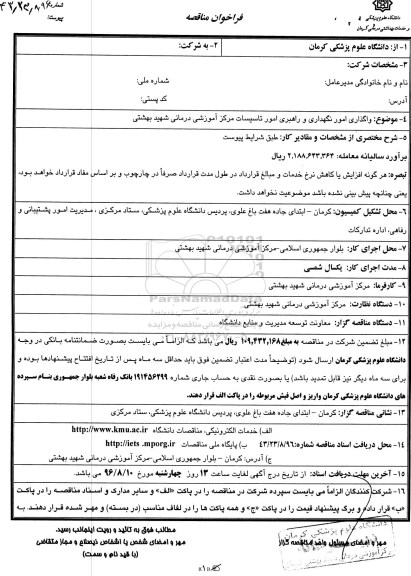 دانشگاه علوم پزشکی
و خدمات بهداشتی درمانی کرمان
فراخوان مناقصه
شماره: ۴۳/۲۳/۸/۹۶
پیوست:
۱- از: دانشگاه علوم پزشکی کرمان
۲- به شرکت:
۳- مشخصات شرکت:
نام و نام خانوادگی مدیرعامل:
شماره ملی:
آدرس:
کد پستی:
۴- موضوع: واگذاری امور نگهداری و راهبری امور تاسیسات مرکز آموزشی درمانی شهید بهشتی
۵- شرح مختصری از مشخصات و مقادیر کار: طبق شرایط پیوست
برآورد سالیانه معامله: ۲،۱۸۸،۶۴۳،۳۶۴ ریال
تبصره: هر گونه افزایش یا کاهش نرخ خدمات و مبالغ قرارداد در طول مدت قرارداد صرفاً در چارچوب و بر اساس مفاد قرارداد خواهد بود.
یعنی چنانچه پیش بینی نشده باشد موضوعیت نخواهد داشت.
۶- محل تشکیل کمیسیون: کرمان – ابتدای جاده هفت باغ علوی، پردیس دانشگاه علوم پزشکی، ستاد مرکزی ، مدیریت امور پشتیبانی و
رفاهی، اداره تدارکات
۷- محل اجرای کار: بلوار جمهوری اسلامی-مرکز آموزشی درمانی شهید بهشتی
۸- مدت اجرای کار: یکسال شمسی
۹- کارفرما: مرکز آموزشی درمانی شهید بهشتی
۱۰- دستگاه نظارت: مرکز آموزشی درمانی شهید بهشتی
۱۱- دستگاه مناقصه گزار: معاونت توسعه مدیریت و منابع دانشگاه
۱۲- مبلغ تضمین شرکت در مناقصه به مبلغ ۱۰۹،۴۳۲،۱۶۸ ریال می باشد که الزاماً می بایست بصورت ضمانتنامه بانکی در وجه
دانشگاه علوم پزشکی کرمان ارسال شود (توضیحاً مدت اعتبار تضمین فوق باید حداقل سه ماه پس از تاریخ افتتاح پیشنهادها بوده و
برای سه ماه دیگر نیز قابل تمدید باشد) یا بصورت نقدی به حساب جاری شماره ۱۹۱۴۵۶۲۹۹ بانک رفاه شعبه بلوار جمهوری بنام سپرده
های دانشگاه علوم پزشکی کرمان واریز و اصل فیش مربوطه را در پاکت الف قرار دهند.
۱۳- نشانی مناقصه گزار: کرمان – ابتدای جاده هفت باغ علوی، پردیس دانشگاه علوم پزشکی، ستاد مرکزی
۱۴- محل دریافت اسناد مناقصه شماره: ۴۳/۲۳/۸/۹۶
الف) خدمات الکترونیکی، مناقصات دانشگاه http://www.kmu.ac.ir
ب) پایگاه ملی مناقصات http://iets .mporg.ir
ج) آدرس: کرمان – بلوار جمهوری اسلامی-مرکز آموزشی درمانی شهید بهشتی
۱۵- آخرین مهلت دریافت اسناد: از تاریخ درج آگهی لغایت ساعت ۱۳ روز چهارشنبه مورخ ۹۶/۸/۱۰ می باشد.
۱۶- شرکت کنندگان الزاماً می بایست سپرده شرکت در مناقصه را در پاکت «الف» و سایر مدارک و اسناد مناقصه را در پاکت
«ب» قرار داده و برگ پیشنهاد قیمت را در پاکت «ج» و همه پاکت ها را در لفاف مناسب (در بسته) و مهر شده قرار دهند. به
مطالب فوق به تائید و رویت اینجانب رسید.
مهر و امضای شخص یا اشخاص ذیصلاح و مجاز متقاضی
(با قید نام و سمت)
مهر و امضای مسئول واحد مناقصه گزار